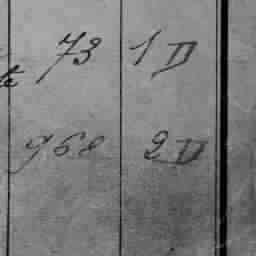 73 1 D
te
968 2 D